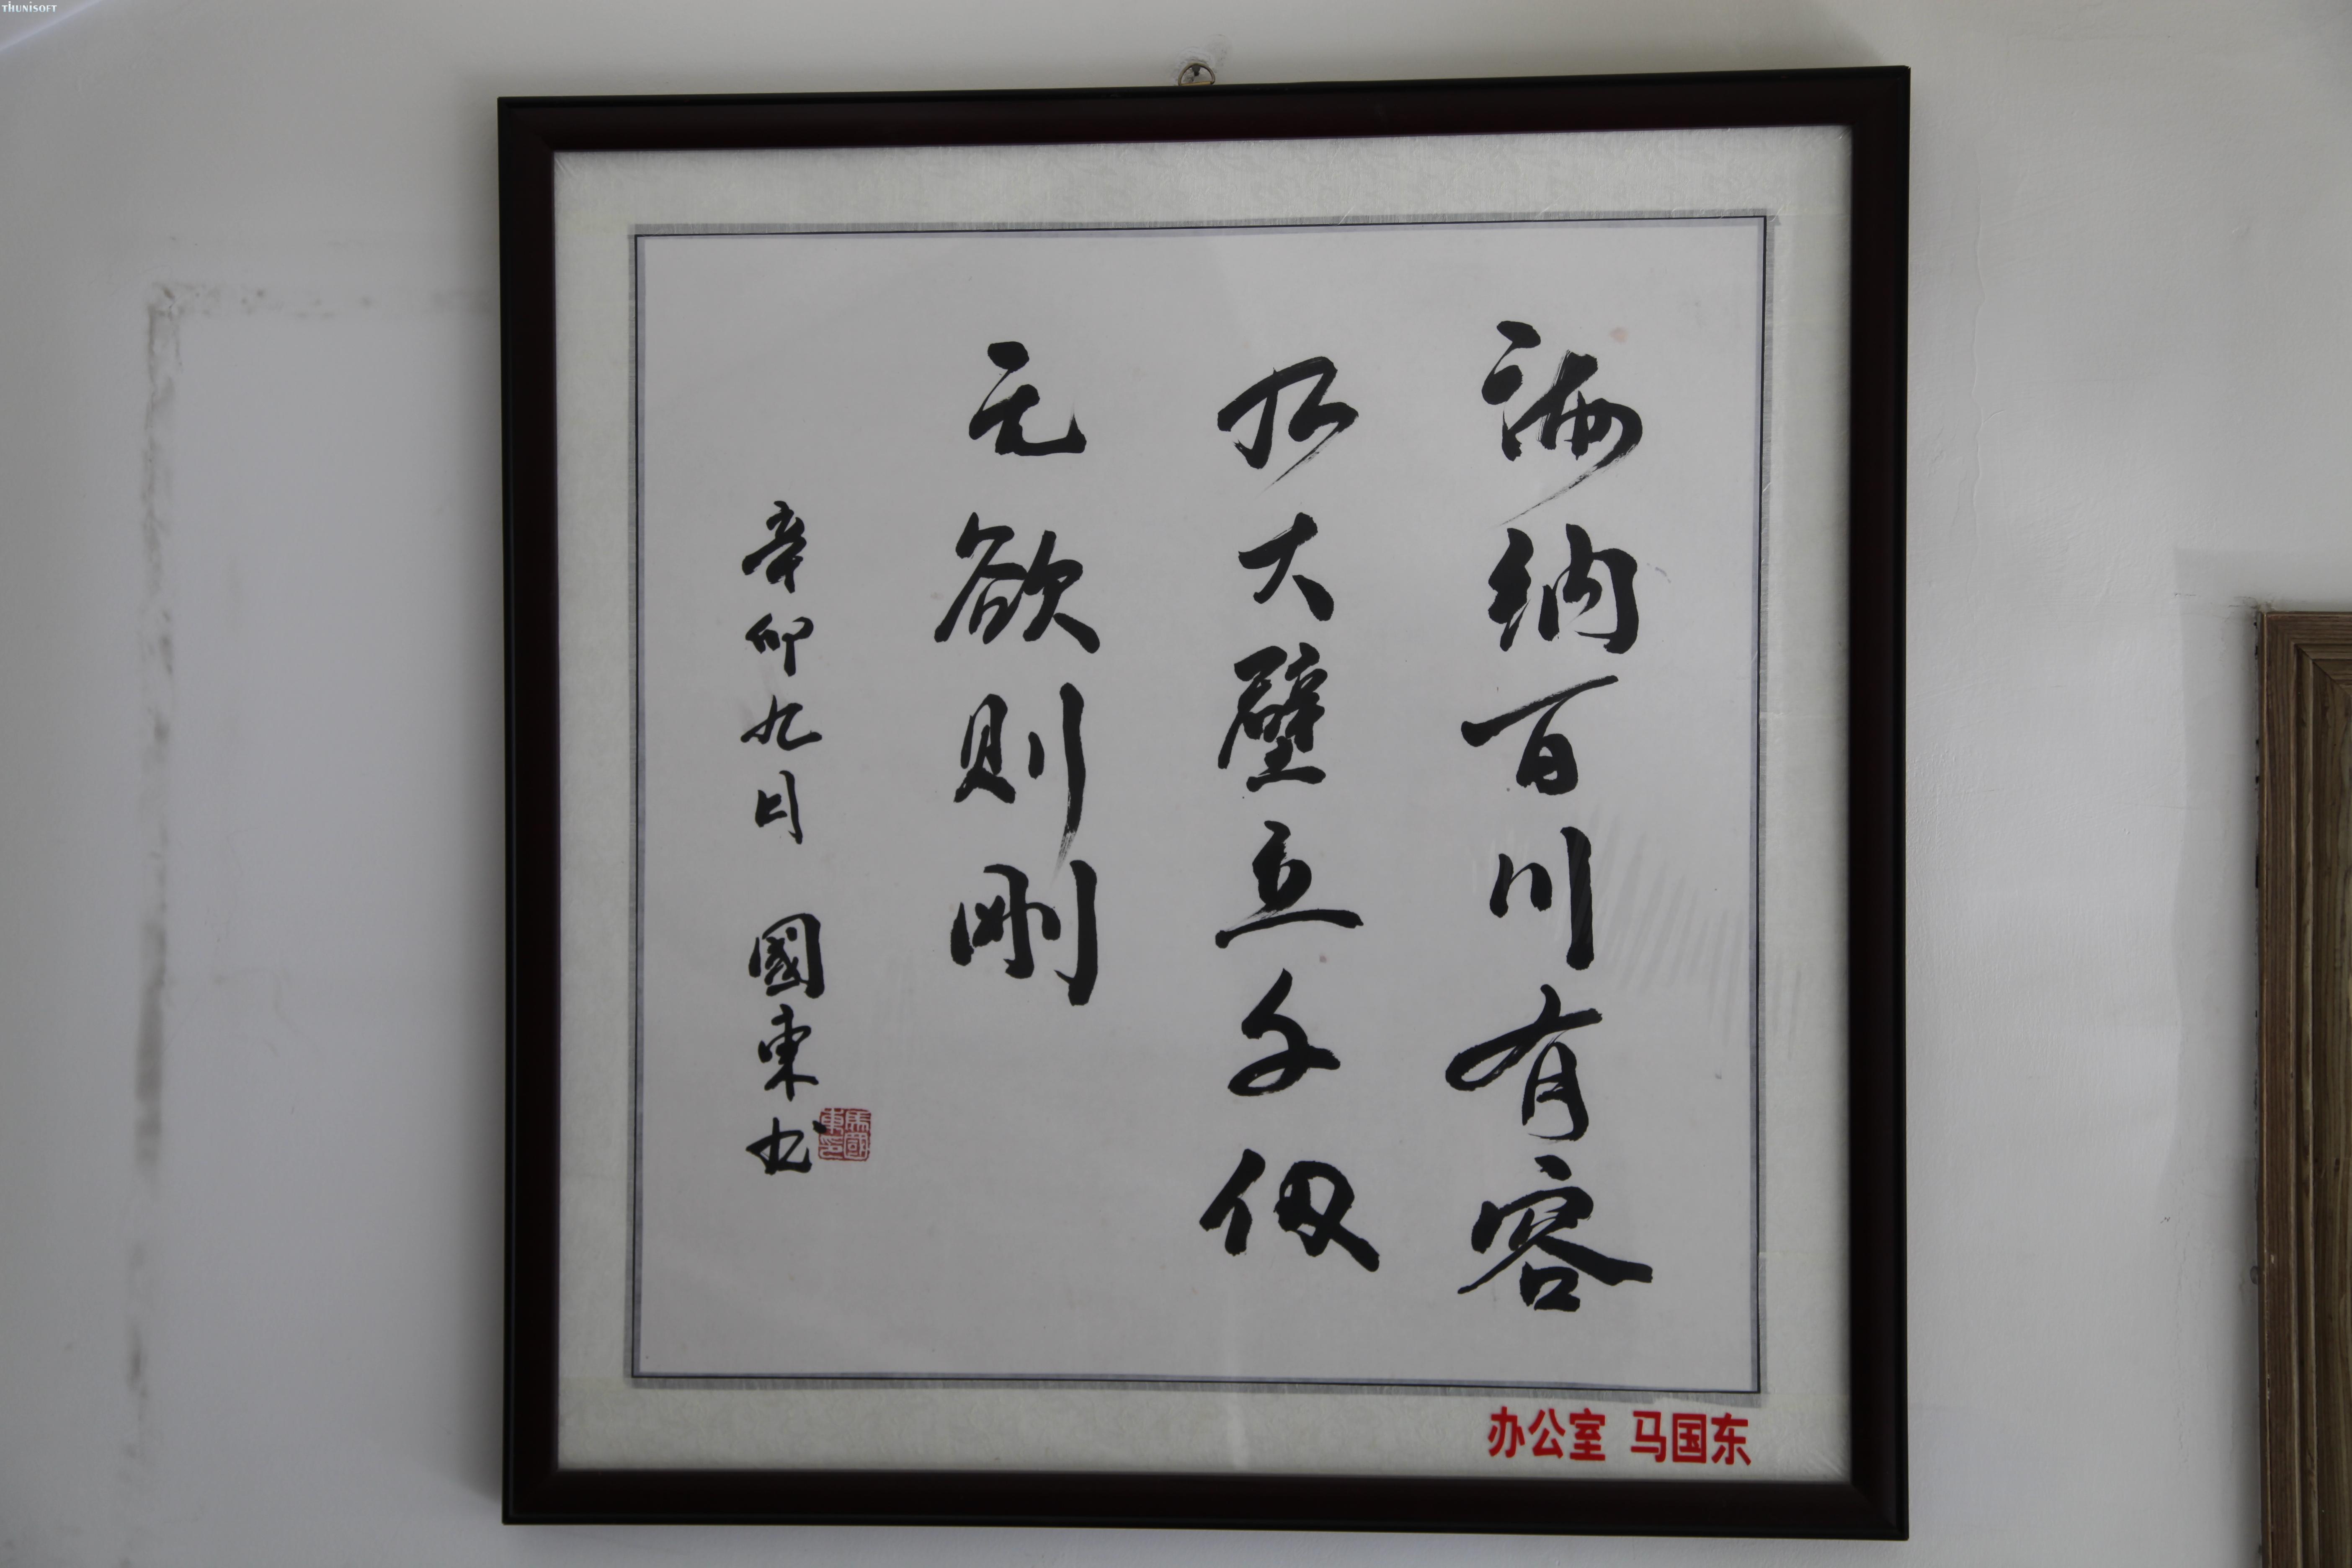 海纳百川有容
乃大壁立千仞
无欲则剛
辛卯九月 國東书
馬國東印
办公室 马国东
THUNISOFT